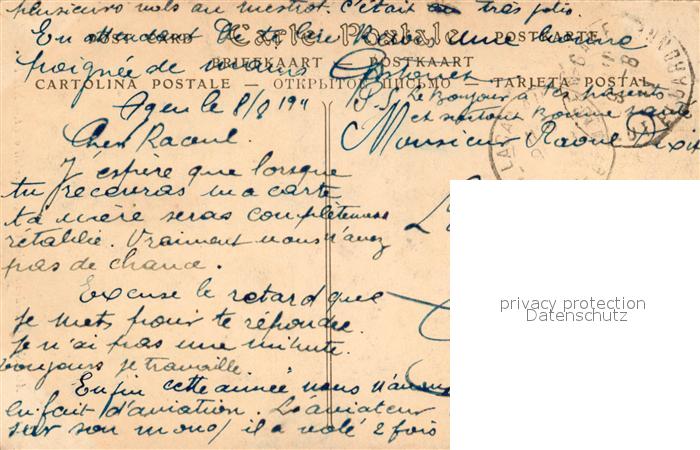 plusieurs vols au meeting. C'était très joli.
En attendant de te lire Reçois une bonne
poignée de mains
POST CARD Carte Postale POSTKARTE
BRIEFKAART — POSTKAART
CARTOLINA POSTALE — ОТКРЫТОЕ ПИСЬМО — TARJETA POSTAL
P.S. Le Bonjour à tes parents
et surtout Bonne santé
Agen le 8/8 1911
Monsieur Raoul
Cher Raoul.
J'espère que lorsque
tu recevras ma carte
ta mère seras complètement
rétablie. Vraiment vous n'avez
pas de chance.
Excuse le retard que
je mets pour te répondre.
Je n'ai pas une minute.
toujours je travaille.
Enfin cette année nous
en fait d'aviation. L'aviateur
sur son mono, il a volé 2 fois
privacy protection
Datenschutz